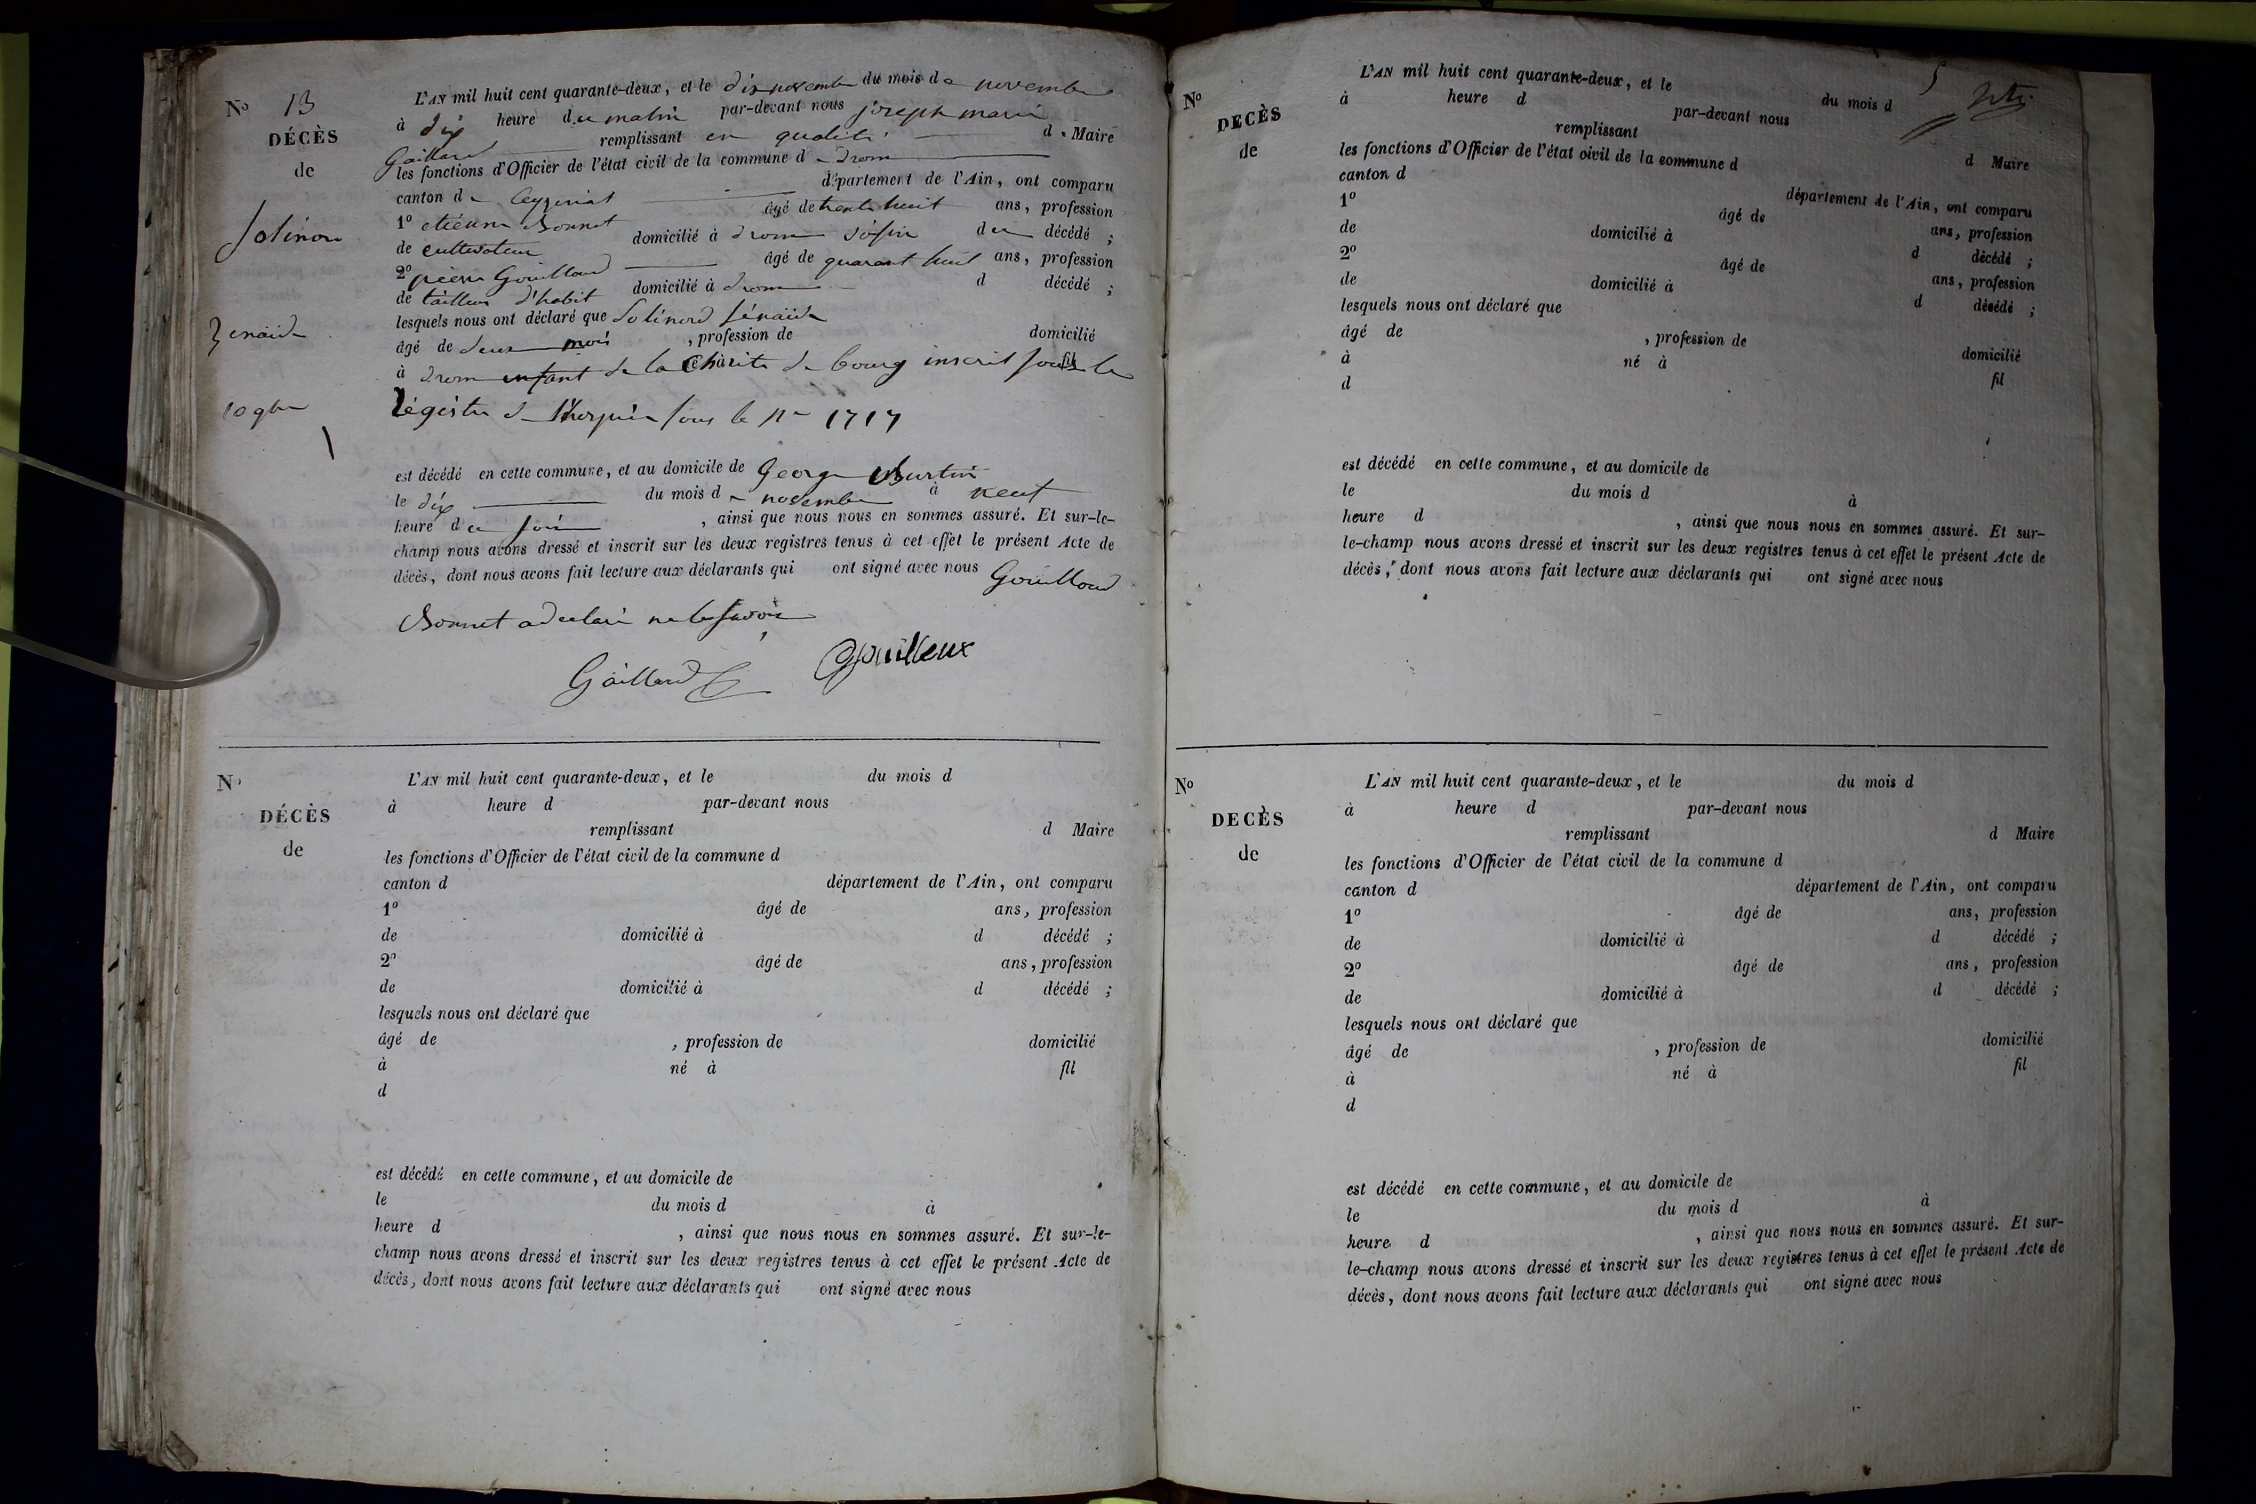 N° 13
DÉCÈS
de
Solinon
Zenaïde
10 9bre
L'AN mil huit cent quarante-deux, et le dix novembre du mois de novembre
à dix heure du matin par-devant nous joseph marie
Gaillard remplissant en qualité d Maire
les fonctions d'Officier de l'état civil de la commune de drom
canton de Ceyzeriat département de l'Ain, ont comparu
1° etienne Bonnet âgé de trente huit ans, profession
de cultivateur domicilié à drom voisin du décédé ;
2° pierre Gouilloud âgé de quarant huit ans, profession
de tailleur d'habit domicilié à drom d décédé ;
lesquels nous ont déclaré que Solinord Sénaïde
âgé de deux mois , profession de domicilié
à drom enfant de la Charité de bourg inscrit sous le fil
régistre de l'hospice sous le n° 1717
est décédé en cette commune, et au domicile de George Burtin
le dix du mois de novembre à neuf
heure du soir , ainsi que nous nous en sommes assuré. Et sur-le-
champ nous avons dressé et inscrit sur les deux registres tenus à cet effet le présent Acte de
décès, dont nous avons fait lecture aux déclarants qui ont signé avec nous Gouilloud
Bonnet a declaré ne le savoir
Gaillard Gouilleux
N°
DÉCÈS
de
L'AN mil huit cent quarante-deux, et le du mois d
à heure d par-devant nous
remplissant d Maire
les fonctions d'Officier de l'état civil de la commune d
canton d département de l'Ain, ont comparu
1° âgé de ans, profession
de domicilié à d décédé ;
2° âgé de ans, profession
de domicilié à d décédé ;
lesquels nous ont déclaré que
âgé de , profession de domicilié
à né à fil
d
est décédé en cette commune, et au domicile de
le du mois d à
heure d , ainsi que nous nous en sommes assuré. Et sur-le-
champ nous avons dressé et inscrit sur les deux registres tenus à cet effet le présent Acte de
décès, dont nous avons fait lecture aux déclarants qui ont signé avec nous
5
N°
DECÈS
de
L'AN mil huit cent quarante-deux, et le du mois d
à heure d par-devant nous
remplissant d Maire
les fonctions d'Officier de l'état civil de la commune d
canton d département de l'Ain, ont comparu
1° âgé de ans, profession
de domicilié à d décédé ;
2° âgé de ans, profession
de domicilié à d décédé ;
lesquels nous ont déclaré que
âgé de , profession de domicilié
à né à fil
d
est décédé en cette commune, et au domicile de
le du mois d à
heure d , ainsi que nous nous en sommes assuré. Et sur-
le-champ nous avons dressé et inscrit sur les deux registres tenus à cet effet le présent Acte de
décès, dont nous avons fait lecture aux déclarants qui ont signé avec nous
N°
DECÈS
de
L'AN mil huit cent quarante-deux, et le du mois d
à heure d par-devant nous
remplissant d Maire
les fonctions d'Officier de l'état civil de la commune d
canton d département de l'Ain, ont comparu
1° âgé de ans, profession
de domicilié à d décédé ;
2° âgé de ans, profession
de domicilié à d décédé ;
lesquels nous ont déclaré que
âgé de , profession de domicilié
à né à fil
d
est décédé en cette commune, et au domicile de
le du mois d à
heure d , ainsi que nous nous en sommes assuré. Et sur-
le-champ nous avons dressé et inscrit sur les deux registres tenus à cet effet le présent Acte de
décès, dont nous avons fait lecture aux déclarants qui ont signé avec nous